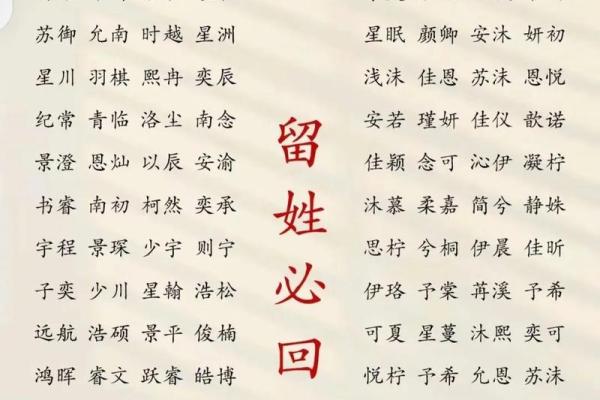 苏御 允南 时越 星洲
星川 羽棋 熙冉 奕辰
纪常 青临 洛尘 南念
景澄 恩灿 以辰 安渝
书睿 南初 柯然 奕承
宇程 景琛 少宇 则宁
子奕 少川 星翰 浩松
远航 浩硕 景平 俊楠
鸿晖 睿文 跃睿 皓博
留姓必回
星眠 颜卿 安沐 妍初
浅沫 佳恩 苏沫 恩悦
安若 瑾妍 佳仪 歆诺
佳颖 念可 沁伊 凝柠
沐慕 柔嘉 简兮 静姝
思柠 兮桐 伊晨 佳昕
伊珞 予棠 苒溪 予希
可夏 星蔓 沐熙 奕可
悦柠 予希 允恩 苏沫